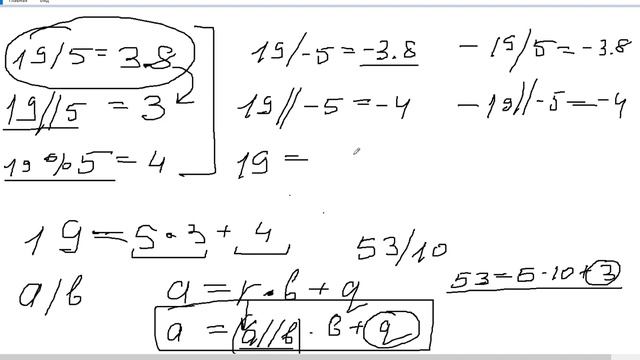 19/5 = 3.8
19//5 = 3
19 % 5 = 4
19/-5 = -3.8
19//-5 = -4
19 =
-19/5 = -3.8
-19//-5 = -4
19 = 5·3 + 4
53/10
53 = 5·10 + 3
a/b
a = r·b + q
a = (a//b)·b + q